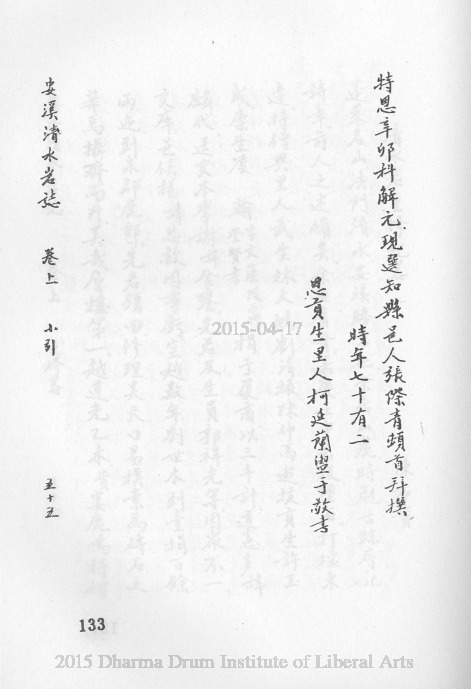 特恩辛卯科解元現選知縣邑人張際青頓首拜撰
時年七十有二
恩貢生里人柯廷蘭盥手敬書
安溪清水岩誌 卷上 小引 五十五
2015-04-17
133
2015 Dharma Drum Institute of Liberal Arts